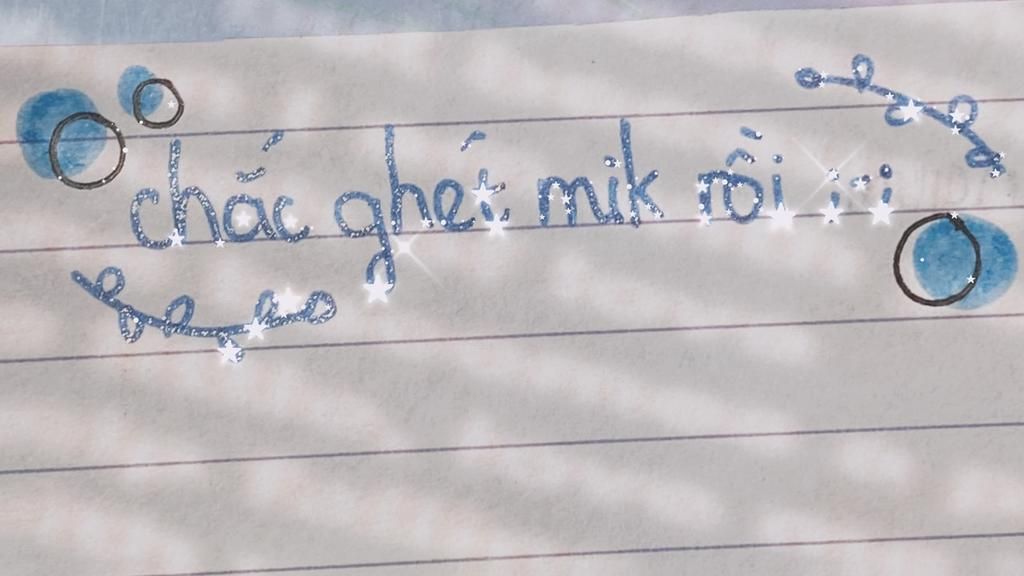 chắc ghét mik rồi